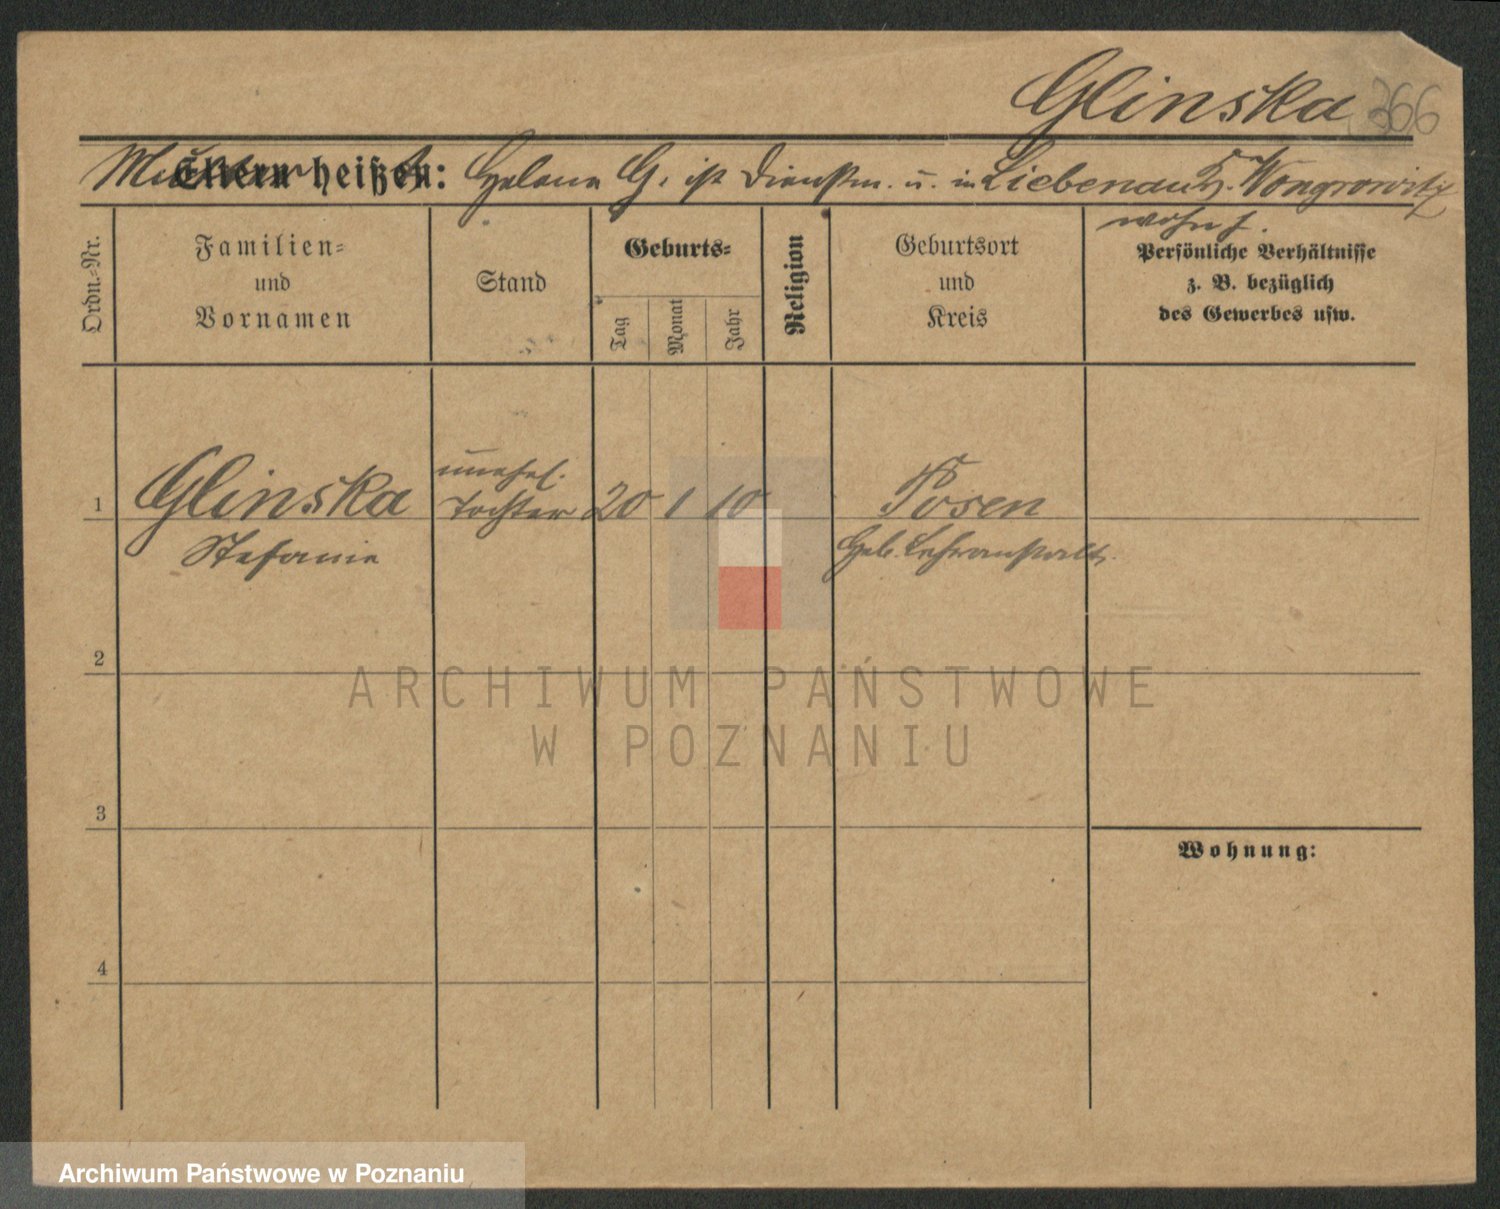 Glinska 366
Eltern heißen: Helene G. ist Dienstm. u. in Liebenau Kr. Wongrowitz
wohnh.
Ordn.-Nr.
Familien-
und
Vornamen
Stand
Geburts-
Tag
Monat
Jahr
Religion
Geburtsort
und
Kreis
Persönliche Verhältnisse
z. B. bezüglich
des Gewerbes usw.
1 Glinska unehel. Tochter 20 1 10 Posen
Stefanie Geb. Lehranstalt.
2
ARCHIWUM PAŃSTWOWE
W POZNANIU
3
Wohnung:
4
Archiwum Państwowe w Poznaniu